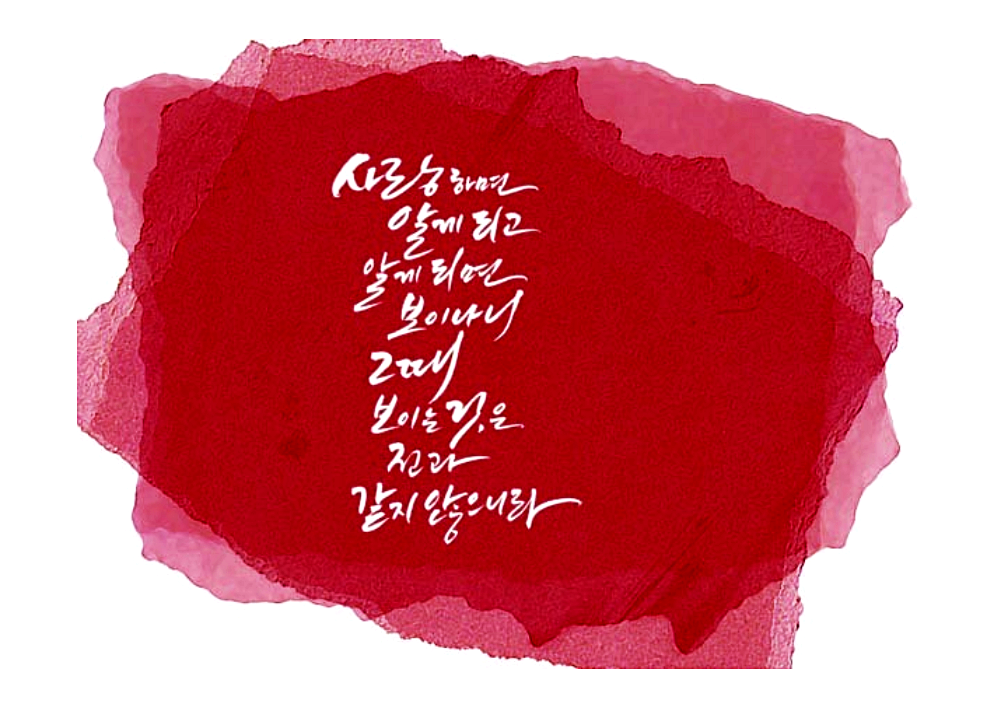 사랑하면
알게 되고
알게 되면
보이나니
그때
보이는 것은
전과
같지 않으니라